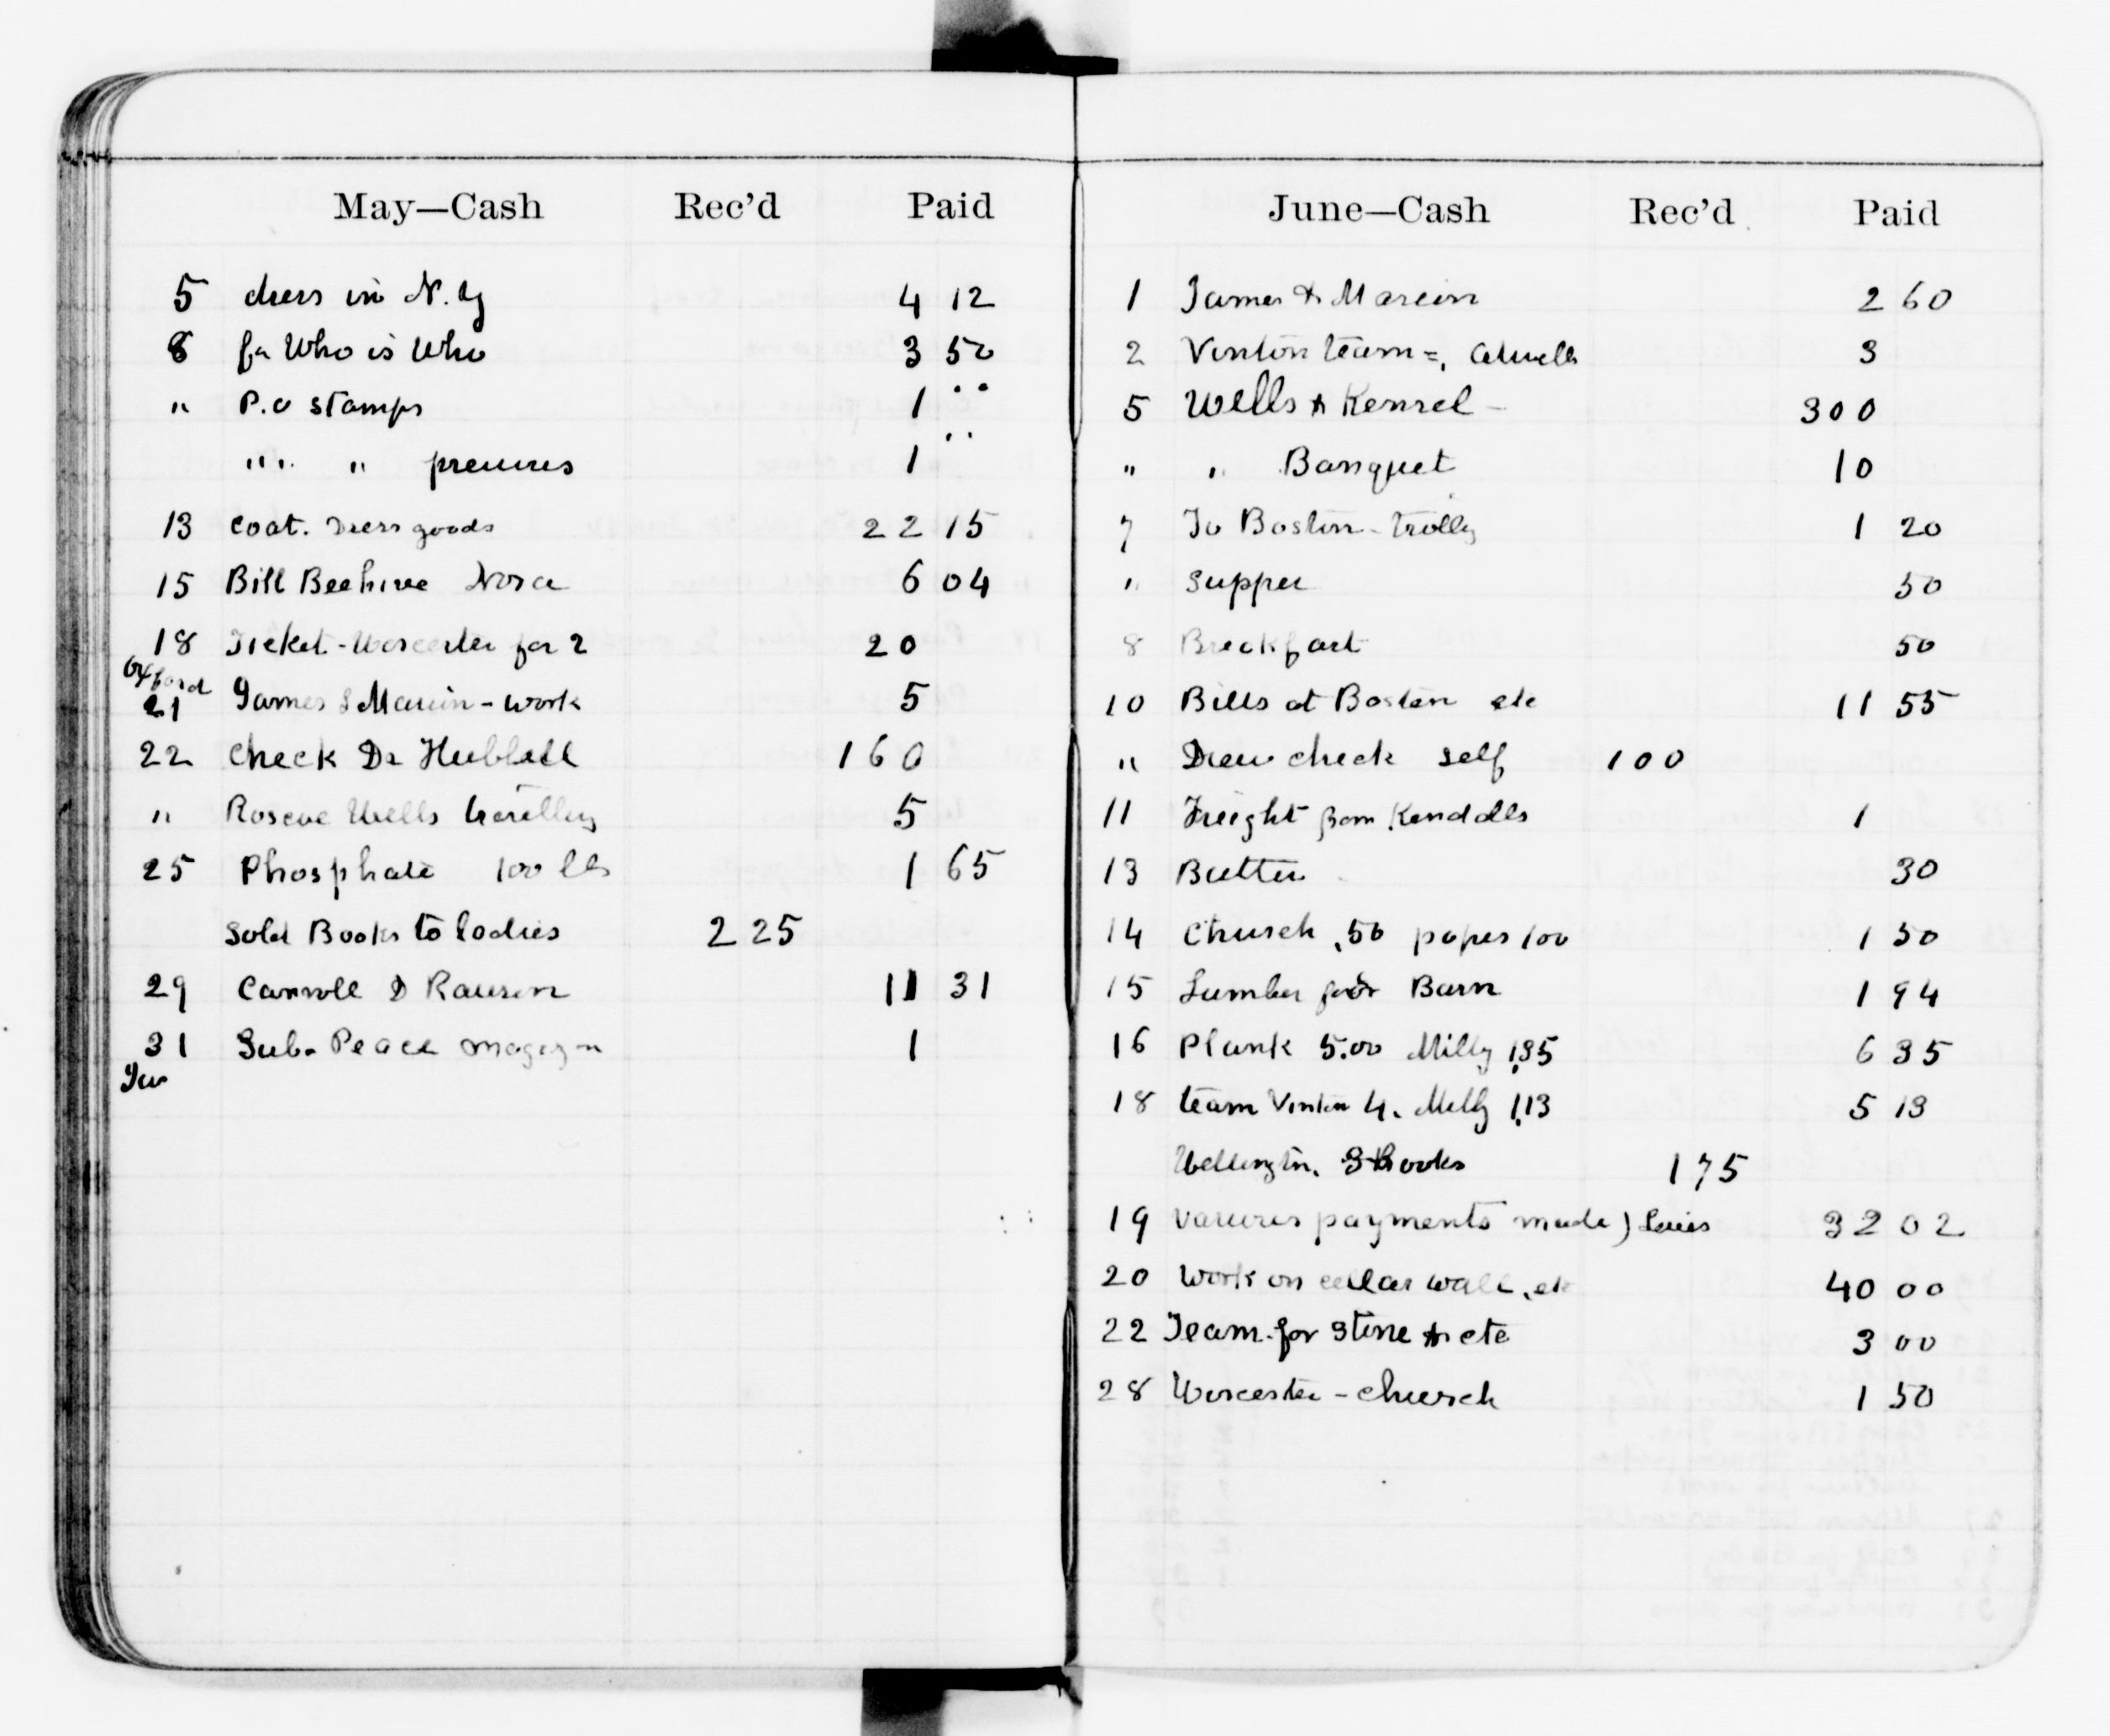 May—Cash Rec'd Paid
5 dress in N. Y 4 12
8 for Who is Who 3 50
" P.O stamps 1 ""
" " " 1 ""
13 Coat. Dress goods 22 15
15 Bill Beehive Nora 6 04
18 Ticket - Worcester for 2 20
Oxford
21 James & Marcin - work 5
22 Check Dr Hubbell 160
" Roscoe Wells 5
25 Phosphate 100 lbs 1 65
Sold Books to ladies 2 25
29 Carroll D Rawson 11 31
31 Sub. Peace 1
June—Cash Rec'd Paid
1 James & Marcin 2 60
2 Vinton team =, 3
5 Wells & Kensel - 300
" " Banquet 10
7 To Boston - trolly 1 20
" Supper 50
8 Breakfast 50
10 Bills at Boston etc 11 55
" Drew check self 100
11 Freight from Kendalls 1
13 Butter 30
14 Church .50 papes 100 1 50
15 Lumber for Barn 1 94
16 Plank 5.00 Milly 1.35 6 35
18 team Vinton 4. Milly 1.13 5 13
Wellington. 3 books 1 75
19 Various payments made) 32 02
20 Work on cellar wall, etc 40 00
22 Team for stone & etc 3 00
28 Worcester - church 1 50